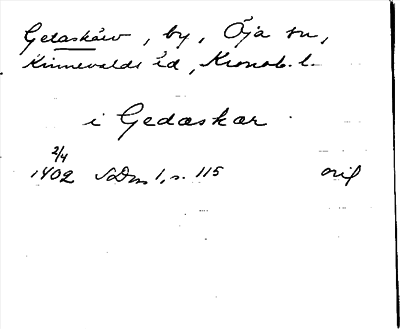 Getaskärv, by, Öja sn,
Kinnevalds hd, Kronob. l.
i Gedaskær
2/4
1402 SDns 1, s. 115 orig